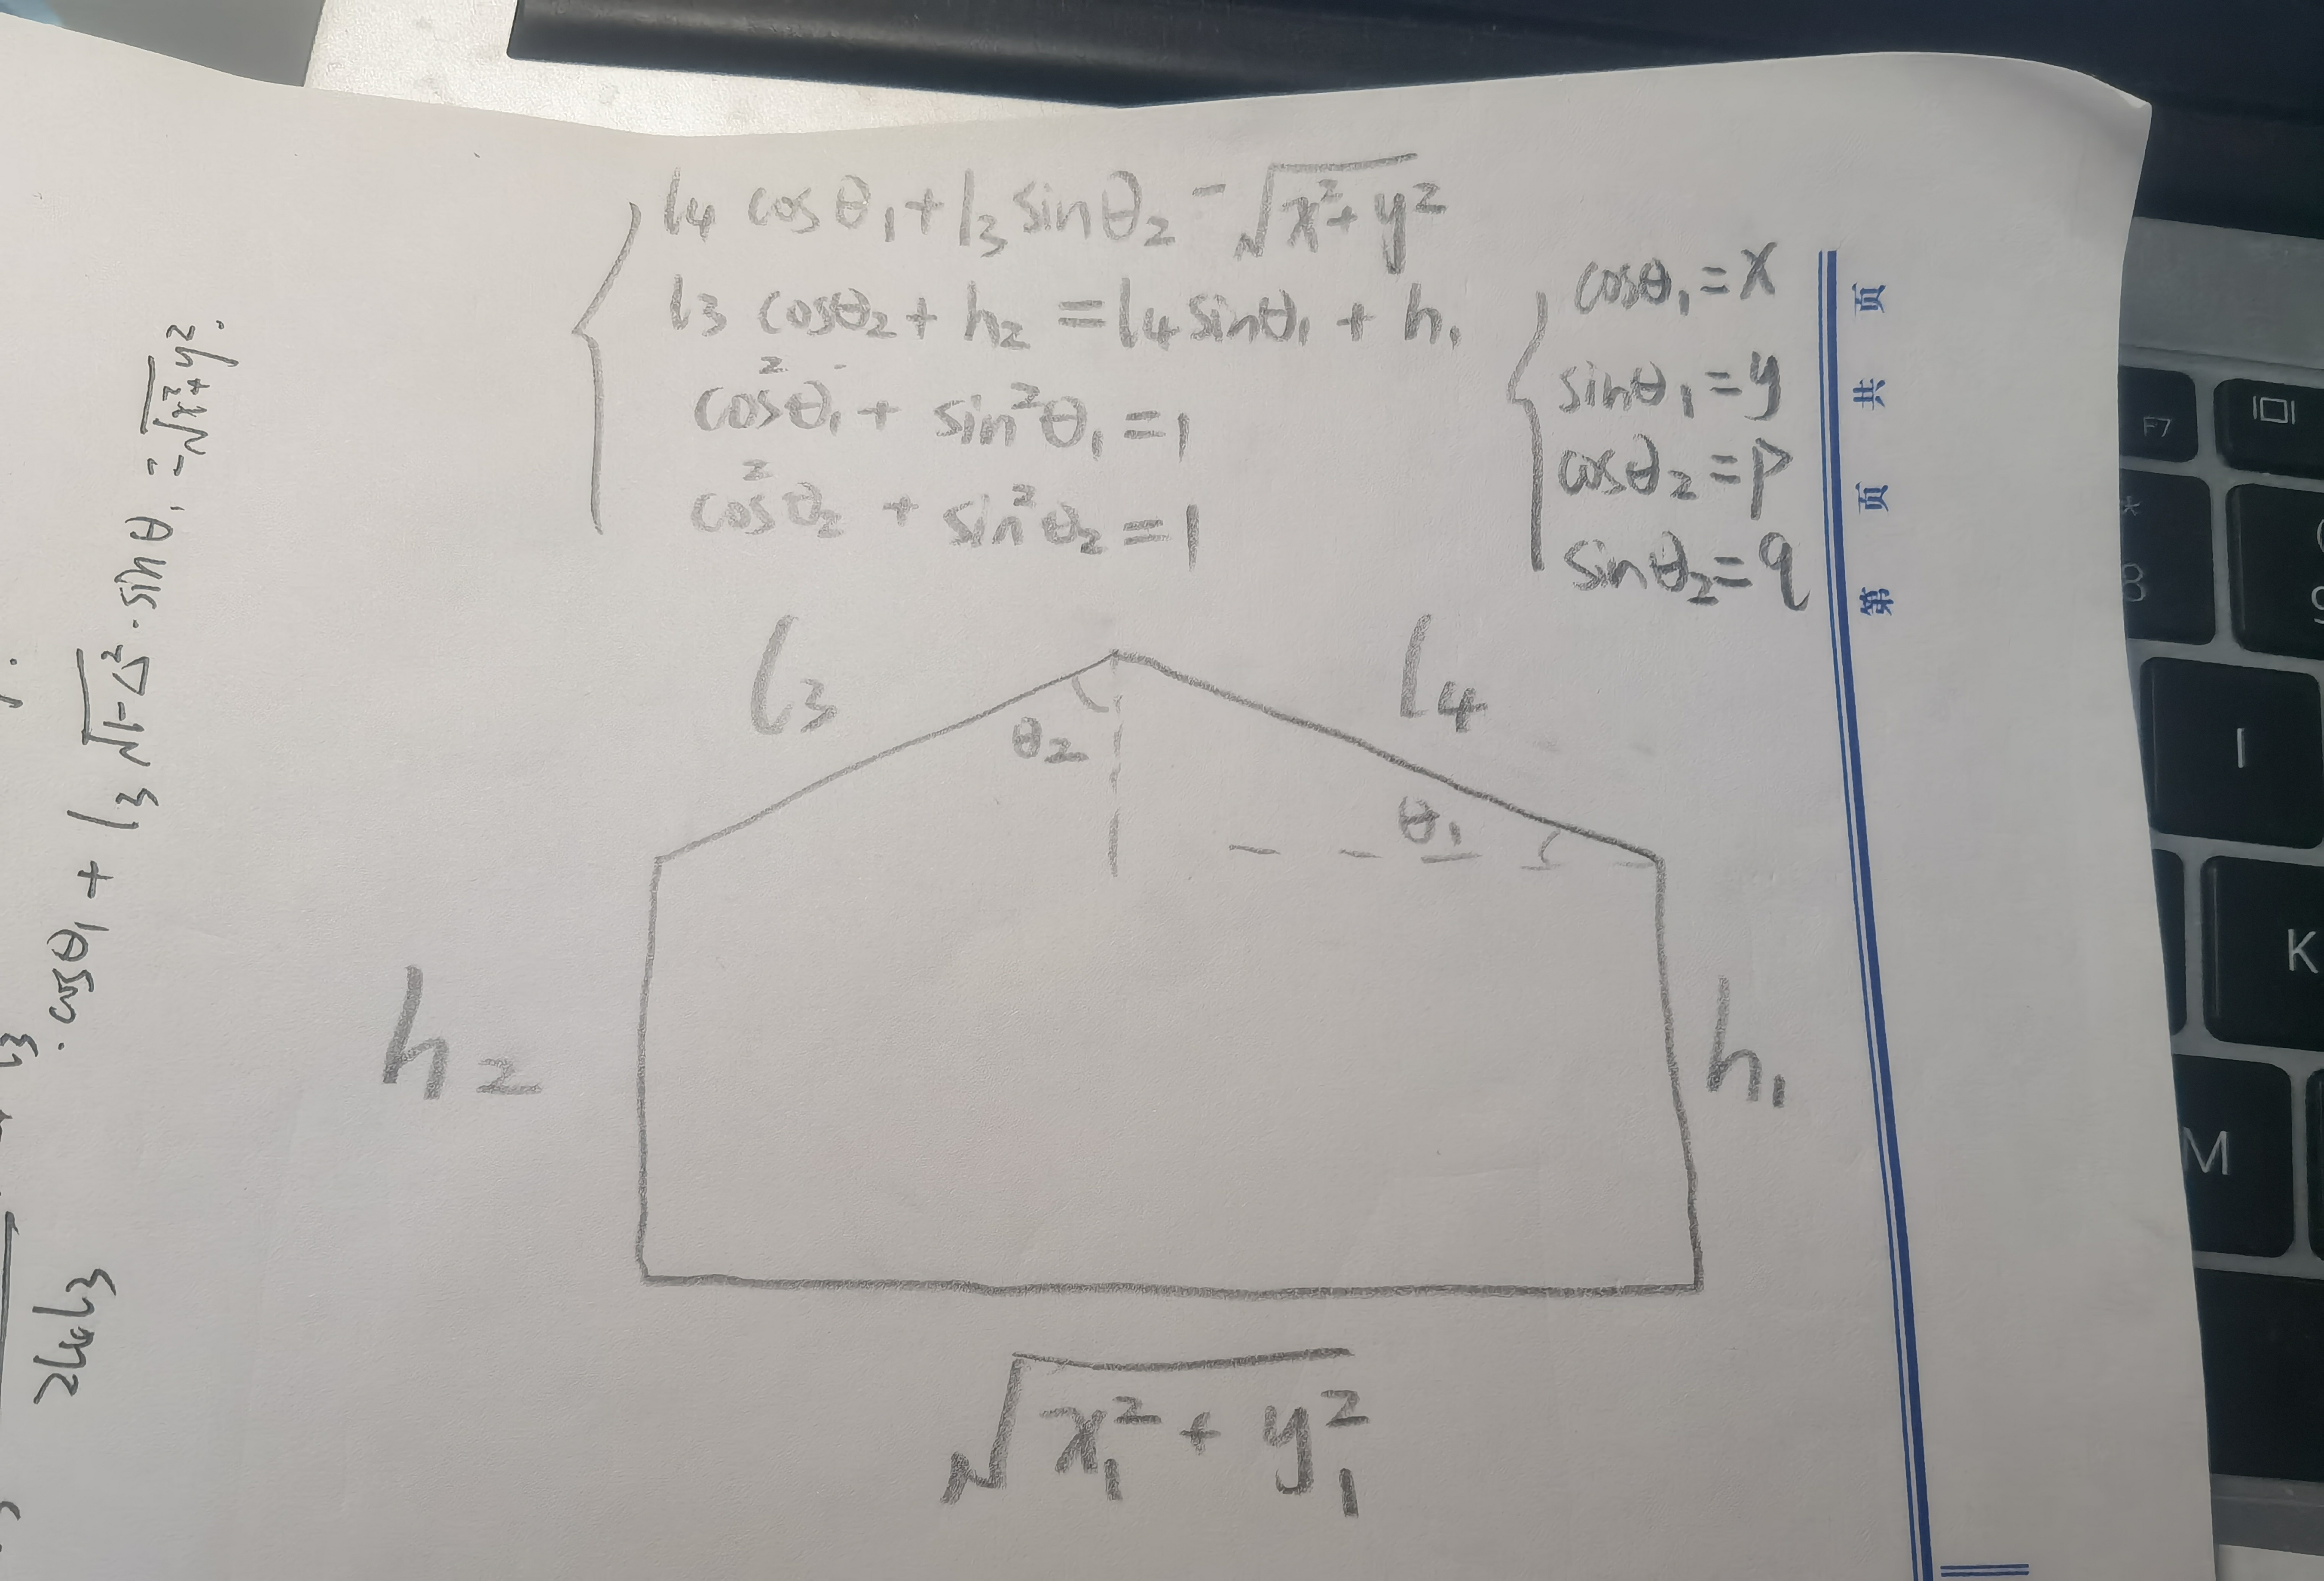 l₄ cosθ₁ + l₃ sinθ₂ = √x²+y²
l₃ cosθ₂ + h₂ = l₄ sinθ₁ + h₁
cos²θ₁ + sin²θ₁ = 1
cos²θ₂ + sin²θ₂ = 1
cosθ₁ = x
sinθ₁ = y
cosθ₂ = p
sinθ₂ = q
l₃
l₄
θ₂
θ₁
h₂
h₁
√x₁²+y₁²
· cosθ₁ + l₃ √1-△² · sinθ₁ = √x²+y².
2l₄l₃
第 页 共 页
F7
*
8
I
K
M